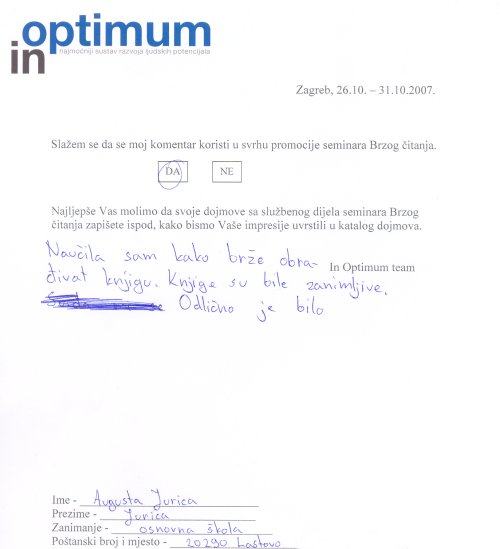 optimum
in
najmoćniji sustav razvoja ljudskih potencijala
Zagreb, 26.10. – 31.10.2007.
Slažem se da se moj komentar koristi u svrhu promocije seminara Brzog čitanja.
DA NE
Najljepše Vas molimo da svoje dojmove sa službenog dijela seminara Brzog
čitanja zapišete ispod, kako bismo Vaše impresije uvrstili u katalog dojmova.
In Optimum team
Naučila sam kako brže obra-
đivat knjigu. Knjige su bile zanimljive.
Odlično je bilo
Ime - Augusta Jurica
Prezime - Jurica
Zanimanje - osnovna škola
Poštanski broj i mjesto - 20290 Lastovo